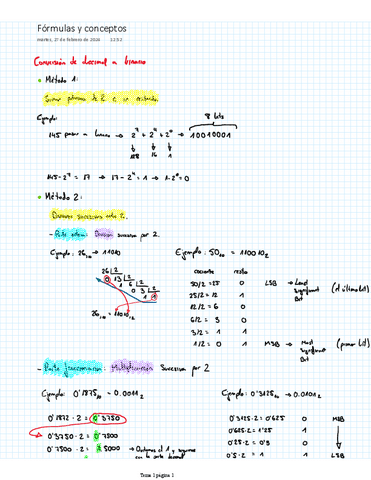 Fórmulas y conceptos
martes, 27 de febrero de 2024 12:52
Conversión de decimal a binario
• Método 1:
Sumar potencias de 2 a su
Ejemplo: 8 bits
145 pasar a binario → 2⁷ + 2⁴ + 2⁰ → 10010001
128 16 1
145 - 2⁷ = 17 → 17 - 2⁴ = 1 → 1 - 2⁰ = 0
• Método 2:
Divisiones sucesivas entre 2.
- Parte entera: División sucesiva por 2.
Ejemplo: 26₁₀ → 11010 Ejemplo: 50₁₀ = 110010₂
26 |2 cociente resto
0 13 |2 50/2 = 25 0 LSB → Least Significant Bit (el último bit)
1 6 |2 25/2 = 12 1
0 3 |2 12/2 = 6 0
1 1 6/2 = 3 0
26₁₀ = 11010₂ 3/2 = 1 1
1/2 = 0 1 MSB → Most Significant Bit (primer bit)
- Parte fraccionaria: Multiplicación sucesiva por 2
Ejemplo: 0'1875₁₀ = 0.0011₂ Ejemplo: 0'3125₁₀ → 0.0101₂
0'1872 · 2 = 0'3750 0'3125·2 = 0'625 0 MSB
0'3750 · 2 = 0'7500 0'625·2 = 1'25 1
0'7500 · 2 = 1'5000 → Quitamos el 1 y seguimos 0'25·2 = 0'5 0
con la parte decimal 0'5·2 = 1 1 LSB
Tema 1 página 1